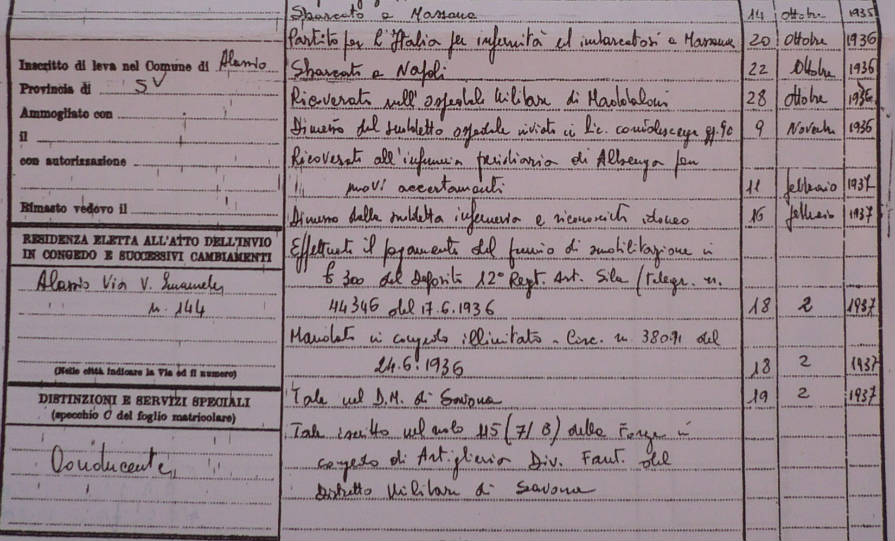 Inscritto di leva nel Comune di Alassio
Provincia di SV
Ammogliato con
il
con autorizzazione
Rimasto vedovo il
RESIDENZA ELETTA ALL'ATTO DELL'INVIO
IN CONGEDO E SUCCESSIVI CAMBIAMENTI
Alassio Via V. Emanuele
n. 144
(Nelle città indicare la Via ed il numero)
DISTINZIONI E SERVIZI SPECIALI
(specchio C del foglio matricolare)
Conducente
Sbarcato a Massaua 14 Ottobre 1935
Partito per l'Italia per infermità ed imbarcatosi a Massaua 20 Ottobre 1936
Sbarcato a Napoli 22 Ottobre 1936
Ricoverato nell'ospedale Militare di Maddaloni 28 Ottobre 1936
Dimesso dal suddetto ospedale inviato in lic. convalescenza gg. 90 9 Novembre 1936
Ricoverato all'infermeria presidiaria di Albenga per
nuovi accertamenti 11 febbraio 1937
Dimesso dalla suddetta infermeria e riconosciuto idoneo 16 febbraio 1937
Effettuato il pagamento del premio di smobilitazione in
£ 300 dal Deposito 12° Regt. Art. Sila (telegr. n.
44346 del 17.6.1936 18 2 1937
Mandato in congedo illimitato - Circ. n. 38091 del
24.6.1936 18 2 1937
Tale nel D.M. di Savona 19 2 1937
Tale iscritto nel ruolo 115 (7/8) della Forza in
congedo di Artiglieria Div. Fant. del
Distretto Militare di Savona